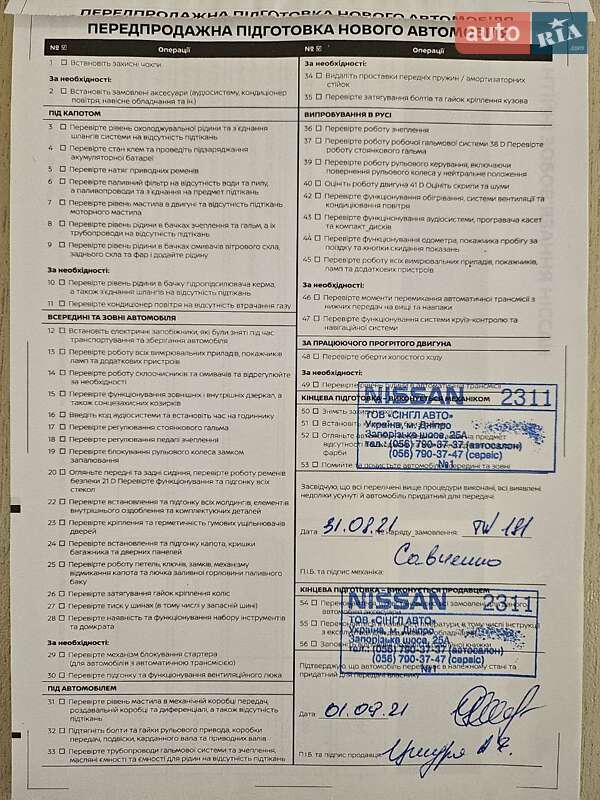 ПЕРЕДПРОДАЖНА ПІДГОТОВКА НОВОГО АВТОМОБІЛЯ
ПЕРЕДПРОДАЖНА ПІДГОТОВКА НОВОГО АВТОМОБІЛЯ
auto RIA.com
№ ☑ Операції
1 ☐ Встановіть захисні чохли
За необхідності:
2 ☐ Встановіть замовлені аксесуари (аудіосистему, кондиціонер
повітря, навісне обладнання та ін.)
ПІД КАПОТОМ
3 ☐ Перевірте рівень охолоджувальної рідини та з'єднання
шлангів системи на відсутність підтікань
4 ☐ Стан клем та проведіть підзаряджання
акумуляторної батареї
5 ☐ Перевірте натяг приводних ременів
6 ☐ Перевірте паливний фільтр на відсутність води та пилу,
а паливопроводи та з'єднання на предмет підтікань
7 ☐ Перевірте рівень мастила в двигуні та відсутність підтікань
моторного мастила
8 ☐ Перевірте рівень рідини в бачках зчеплення та гальм, а їх
трубопроводи на відсутність підтікань
9 ☐ Перевірте рівень рідини в бачках омивачів вітрового скла,
заднього скла та фар і додайте рідину
За необхідності:
10 ☐ Перевірте рівень рідини в бачку гідропідсилювача керма,
а також з'єднання шлангів на відсутність підтікань
11 ☐ Перевірте кондиціонер повітря на відсутність втрачання газу
ВСЕРЕДИНІ ТА ЗОВНІ АВТОМОБІЛЯ
12 ☐ Встановіть електричні запобіжники, які були зняті під час
транспортування та зберігання автомобіля
13 ☐ Перевірте роботу всіх вимірювальних приладів, покажчиків
ламп та додаткових пристроїв
14 ☐ Перевірте роботу склоочисників та омивачів та відрегулюйте
за необхідності
15 ☐ Перевірте функціонування зовнішніх і внутрішніх дзеркал, а
також сонцезахисних козирків
16 ☐ Введіть код аудіосистеми та встановіть час на годиннику
17 ☐ Перевірте регулювання стоянкового гальма
18 ☐ Перевірте регулювання педалі зчеплення
19 ☐ Перевірте блокування рульового колеса замком
запалювання
20 ☐ Огляньте передні та задні сидіння, перевірте роботу ременів
безпеки 21 D Перевірте функціонування та підгонку всіх
стекол
22 ☐ Перевірте встановлення та підгонку всіх молдингів, елементів
внутрішнього оздоблення та комплектуючих деталей
23 ☐ Перевірте кріплення та герметичність гумових ущільнювачів
дверей
24 ☐ Перевірте встановлення та підгонку капота, кришки
багажника та дверних панелей
25 ☐ Перевірте роботу петель, ключів, замків, механізму
відмикання капота та лючка заливної горловини паливного
баку
26 ☐ Перевірте затягування гайок кріплення коліс
27 ☐ Перевірте тиск у шинах (в тому числі у запасній шині)
28 ☐ Перевірте наявність та функціонування набору інструментів
та домкрата
За необхідності:
29 ☐ Перевірте механізм блокування стартера
(для автомобілів з автоматичною трансмісією)
30 ☐ Перевірте підгонку та функціонування вентиляційного люка
ПІД АВТОМОБІЛЕМ
31 ☐ Перевірте рівень мастила в механічній коробці передач,
роздавальній коробці та диференціалі, а також відсутність
підтікань
32 ☐ Підтягніть болти та гайки рульового привода, коробки
передач, подвіски, карданного вала та приводних валів
33 ☐ Перевірте трубопроводи гальмової системи та зчеплення,
масляні ємності та ємності для рідин на відсутність підтікань
☑ Операції
За необхідності:
34 ☐ Видаліть проставки передніх пружин / амортизаторних
стійок
35 ☐ Перевірте затягування болтів та гайок кріплення кузова
ВИПРОБУВАННЯ В РУСІ
36 ☐ Перевірте роботу зчеплення
37 ☐ Перевірте роботу робочої гальмової системи 38 D Перевірте
роботу стоянкового гальма
39 ☐ Перевірте роботу рульового керування, включаючи
повернення рульового колеса у нейтральне положення
40 ☐ Оцініть роботу двигуна 41 D Оцініть скрипи та шуми
42 ☐ Перевірте функціонування обігрівання, системи вентиляції та
кондиціювання повітря
43 ☐ Перевірте функціонування аудіосистеми, програвача касет
та компакт_дисків
44 ☐ Перевірте функціонування одометра, покажчика пробігу за
поїздку та кнопки скидання показань
45 ☐ Перевірте роботу всіх вимірювальних приладів, покажчиків,
ламп та додаткових пристроїв
За необхідності:
46 ☐ Перевірте моменти перемикання автоматичної трансмісії з
нижчих передач на вищі та навпаки
47 ☐ Перевірте функціонування системи круїз-контролю та
навігаційної системи
ЗА ПРАЦЮЮЧОГО ПРОГРІТОГО ДВИГУНА
48 ☐ Перевірте оберти холостого ходу
За необхідності:
49 ☐ Перевірте рівень
КІНЦЕВА ПІДГОТОВКА – ВИКОНУЄТЬСЯ МЕХАНІКОМ
50 ☐ Зніміть захисні
51 ☐ Встановіть
52 ☐ Огляньте
відсутність
фарби
53 ☐ Помийте та почистьте автомобіль всередині та зовні
NISSAN 2311
ТОВ «СІНГЛ АВТО»
Україна, м. Дніпро
Запорізьке шосе, 25А
тел.: (056) 790-37-37 (автосалон)
(056) 790-37-47 (сервіс)
№1
Засвідчую, що всі перелічені вище процедури виконані, всі виявлені
недоліки усунуті й автомобіль придатний для передачі
Дата 31.08.21 № наряду_замовлення:
Савченко
П.І.Б. та підпис механіка:
КІНЦЕВА ПІДГОТОВКА – ВИКОНУЄТЬСЯ ПРОДАВЦЕМ
54 ☐
55 ☐ літератури, в тому числі інструкції
з експлуатації
56 ☐ Заповніть
NISSAN 2311
ТОВ «СІНГЛ АВТО»
Україна, м. Дніпро
Запорізьке шосе, 25А
тел.: (056) 790-37-37 (автосалон)
(056) 790-37-47 (сервіс)
№1
Підтверджую, що автомобіль перебуває в належному стані та
придатний для передачі власнику
Дата: 01.09.21
П.І.Б. та підпис продавця